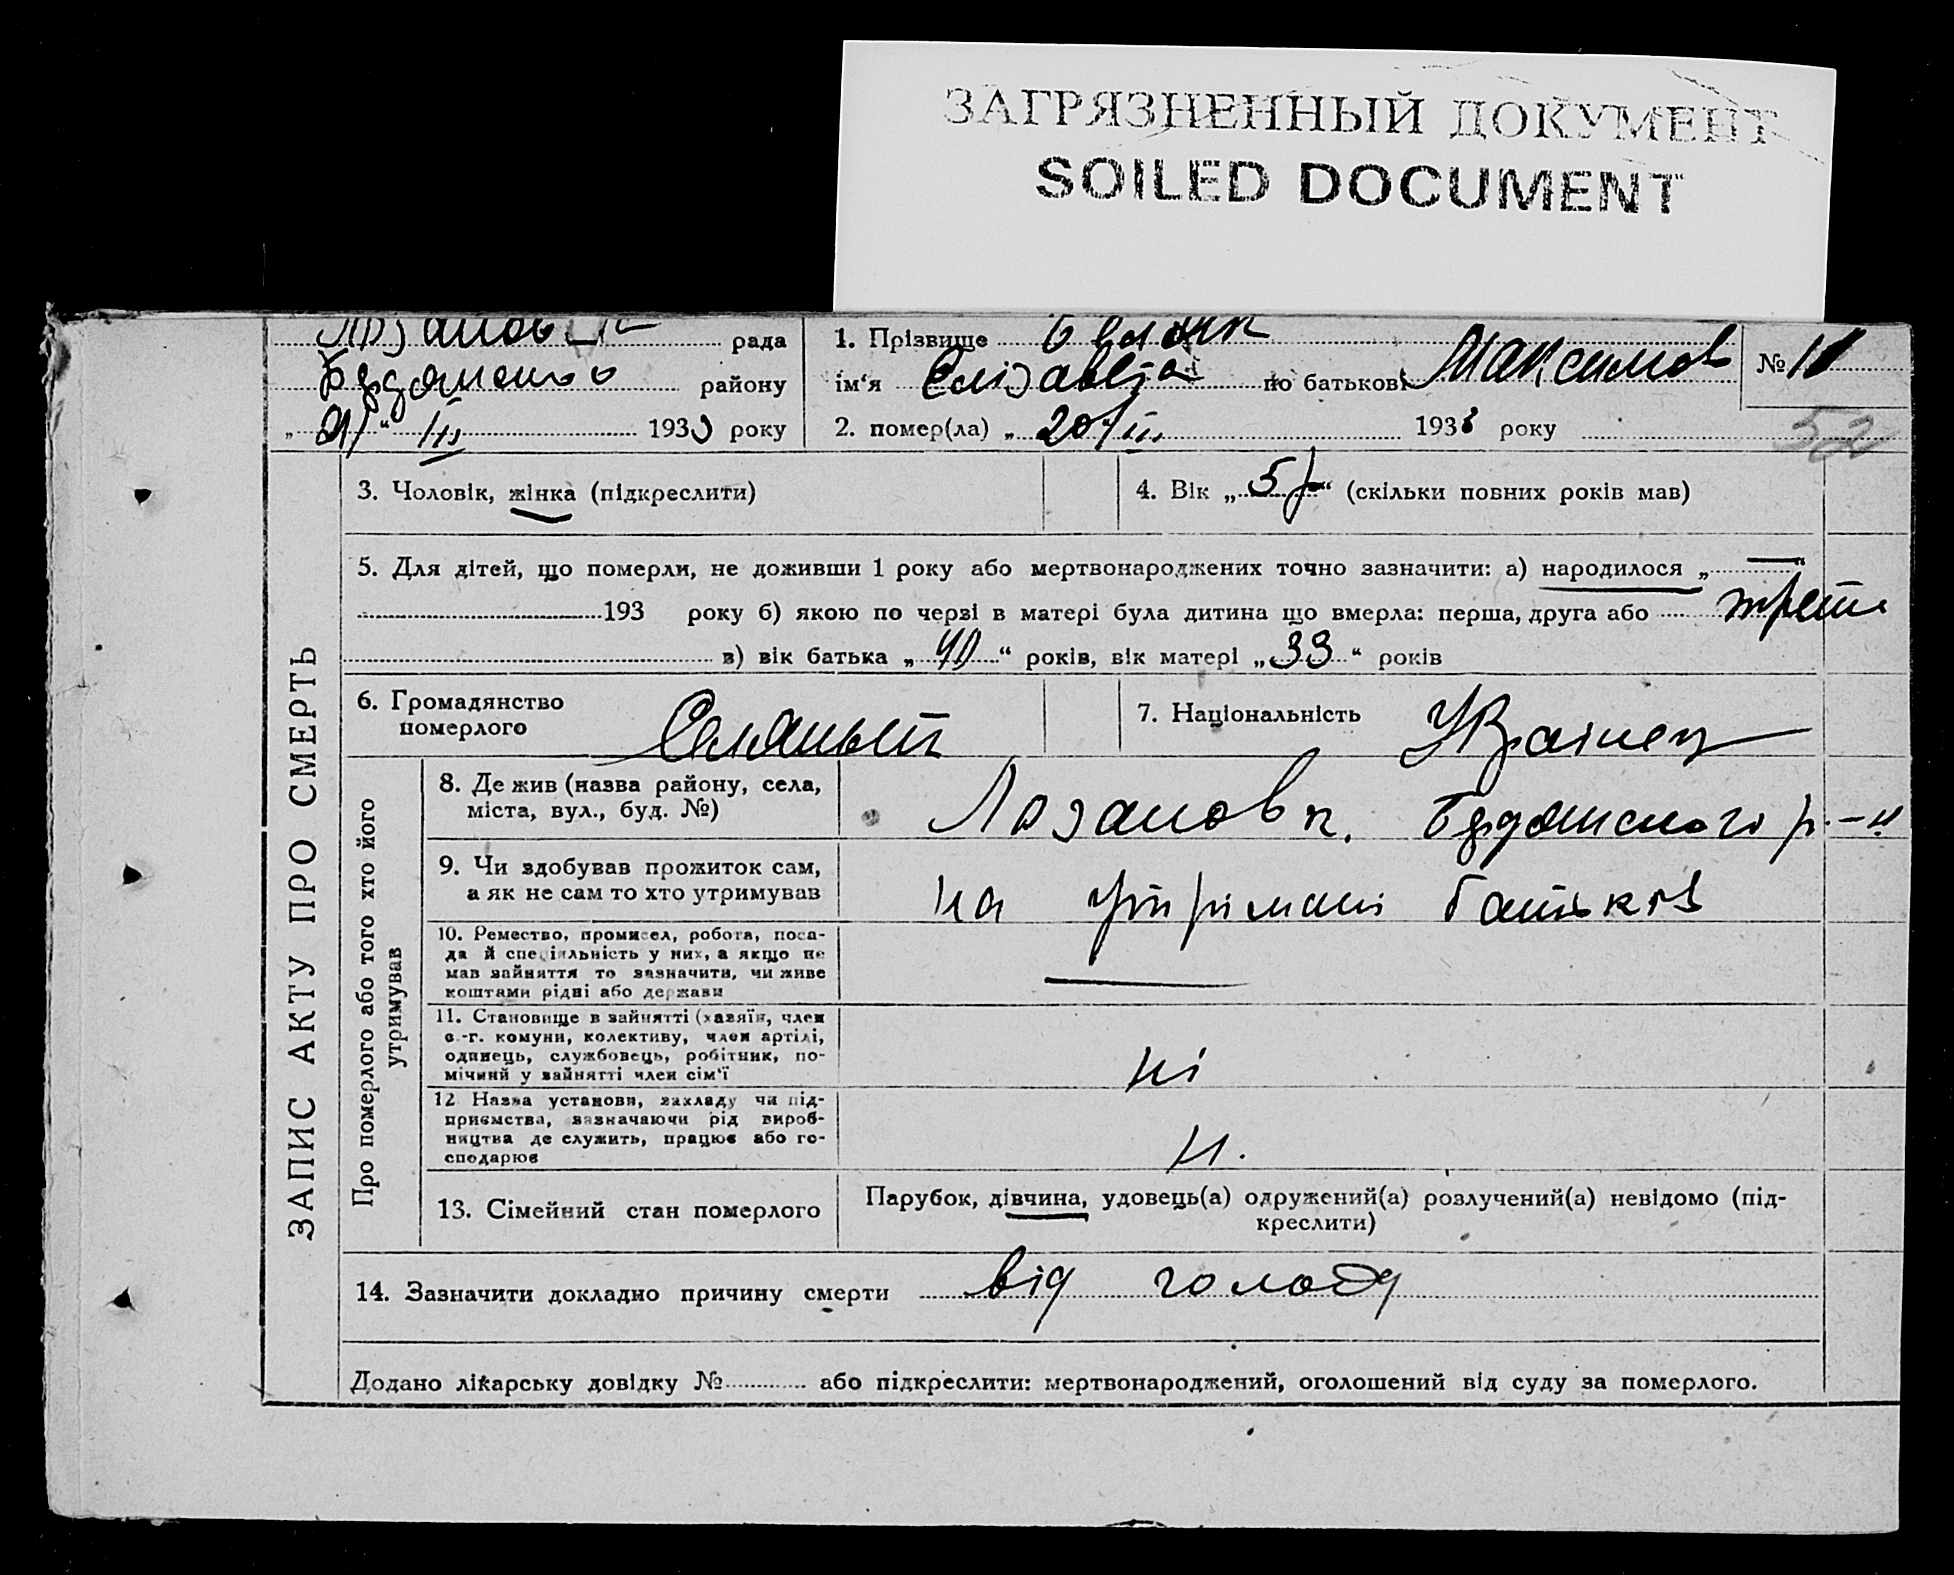 ЗАГРЯЗНЕННЫЙ ДОКУМЕНТ
SOILED DOCUMENT
рада
району
„21/“ III 1933 року
1. Прізвище
ім'я Єлізавета по батькові Максимов
№ 11
2. помер(ла) „20/III 1933 року
52
ЗАПИС АКТУ ПРО СМЕРТЬ
3. Чоловік, жінка (підкреслити)
4. Вік „5 р“ (скільки повних років мав)
5. Для дітей, що померли, не доживши 1 року або мертвонароджених точно зазначити: а) народилося „—“
193 року б) якою по черзі в матері була дитина що вмерла: перша, друга або
в) вік батька „40“ років, вік матері „33“ років
6. Громадянство
померлого
7. Національність Украінец
Про померлого або того хто його
утримував
8. Де жив (назва району, села,
міста, вул., буд. №)
Лозановк. р.-н
9. Чи здобував прожиток сам,
а як не сам то хто утримував
на утрімані батьків
10. Ремество, промисел, робота, поса-
да й спеціяльність у них, а якщо не
мав зайняття то зазначити, чи живе
коштами рідні або держави
—
11. Становище в зайнятті (хазяїн, член
с.-г. комуни, колективу, член артілі,
одинець, службовець, робітник, по-
мічний у зайнятті член сім'ї
ні
12 Назва установи, закладу чи під-
приємства, зазначаючи рід вироб-
ництва де служить, працює або го-
сподарює
н.
13. Сімейний стан померлого
Парубок, дівчина, удовець(а) одружений(а) розлучений(а) невідомо (під-
креслити)
14. Зазначити докладно причину смерти від голоду
Додано лікарську довідку № або підкреслити: мертвонароджений, оголошений від суду за померлого.